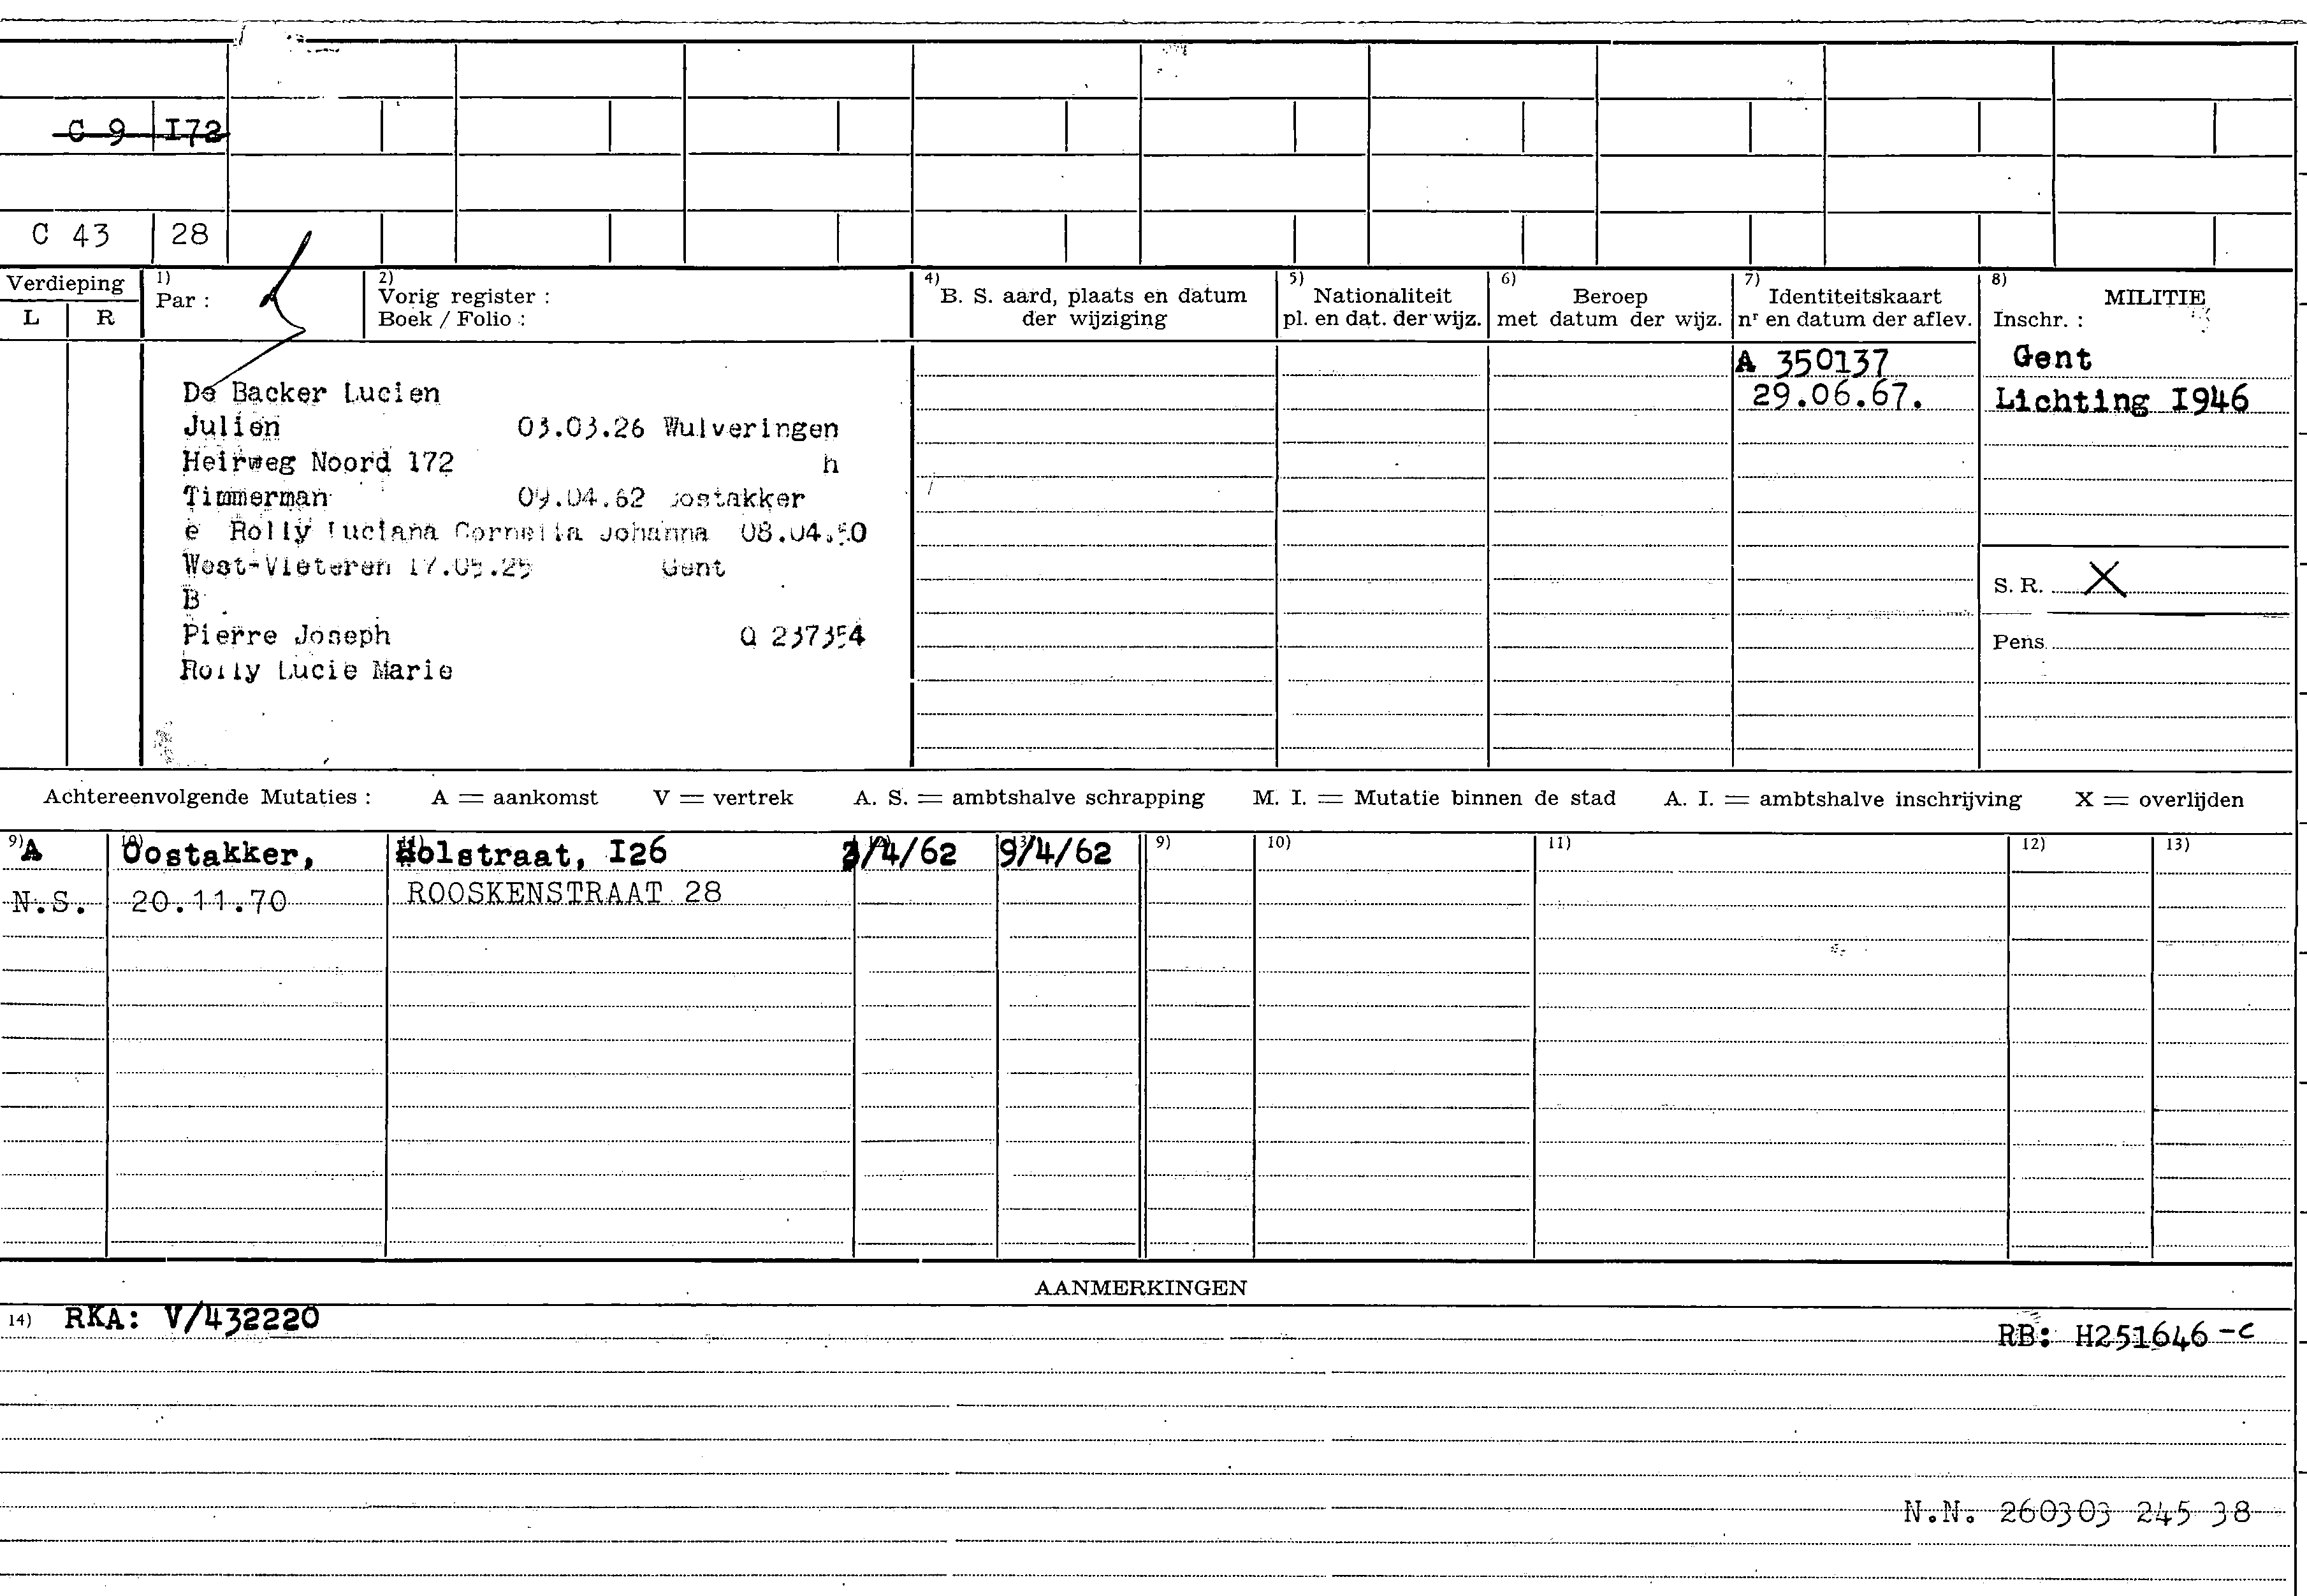 C 9 I72
C 43 28
Verdieping
L R
1)
Par :
2)
Vorig register :
Boek / Folio :
4)
B. S. aard, plaats en datum
der wijziging
5)
Nationaliteit
pl. en dat. der wijz.
6)
Beroep
met datum der wijz.
7)
Identiteitskaart
nr en datum der aflev.
8)
MILITIE
Inschr. :
A 350137
29.06.67.
Gent
Lichting I946
De Backer Lucien
Julien 03.03.26 Wulveringen
Heirweg Noord 172 h
Timmerman 09.04.62 Oostakker
e Rolly Luciana Cornelia Johanna 08.04.50
West-Vleteren Gent
B
Pierre Joseph Q 237354
Rolly Lucie Marie
S. R. X
Pens.
Achtereenvolgende Mutaties : A = aankomst V = vertrek A. S. = ambtshalve schrapping M. I. = Mutatie binnen de stad A. I. = ambtshalve inschrijving X = overlijden
9) 10) 11) 12) 13) 9) 10) 11) 12) 13)
A Oostakker, Holstraat, I26 3/4/62 9/4/62
N.S. 20.11.70 ROOSKENSTRAAT 28
AANMERKINGEN
14) RKA: V/432220
RB: H251646-c
N.N. 260303 245 38